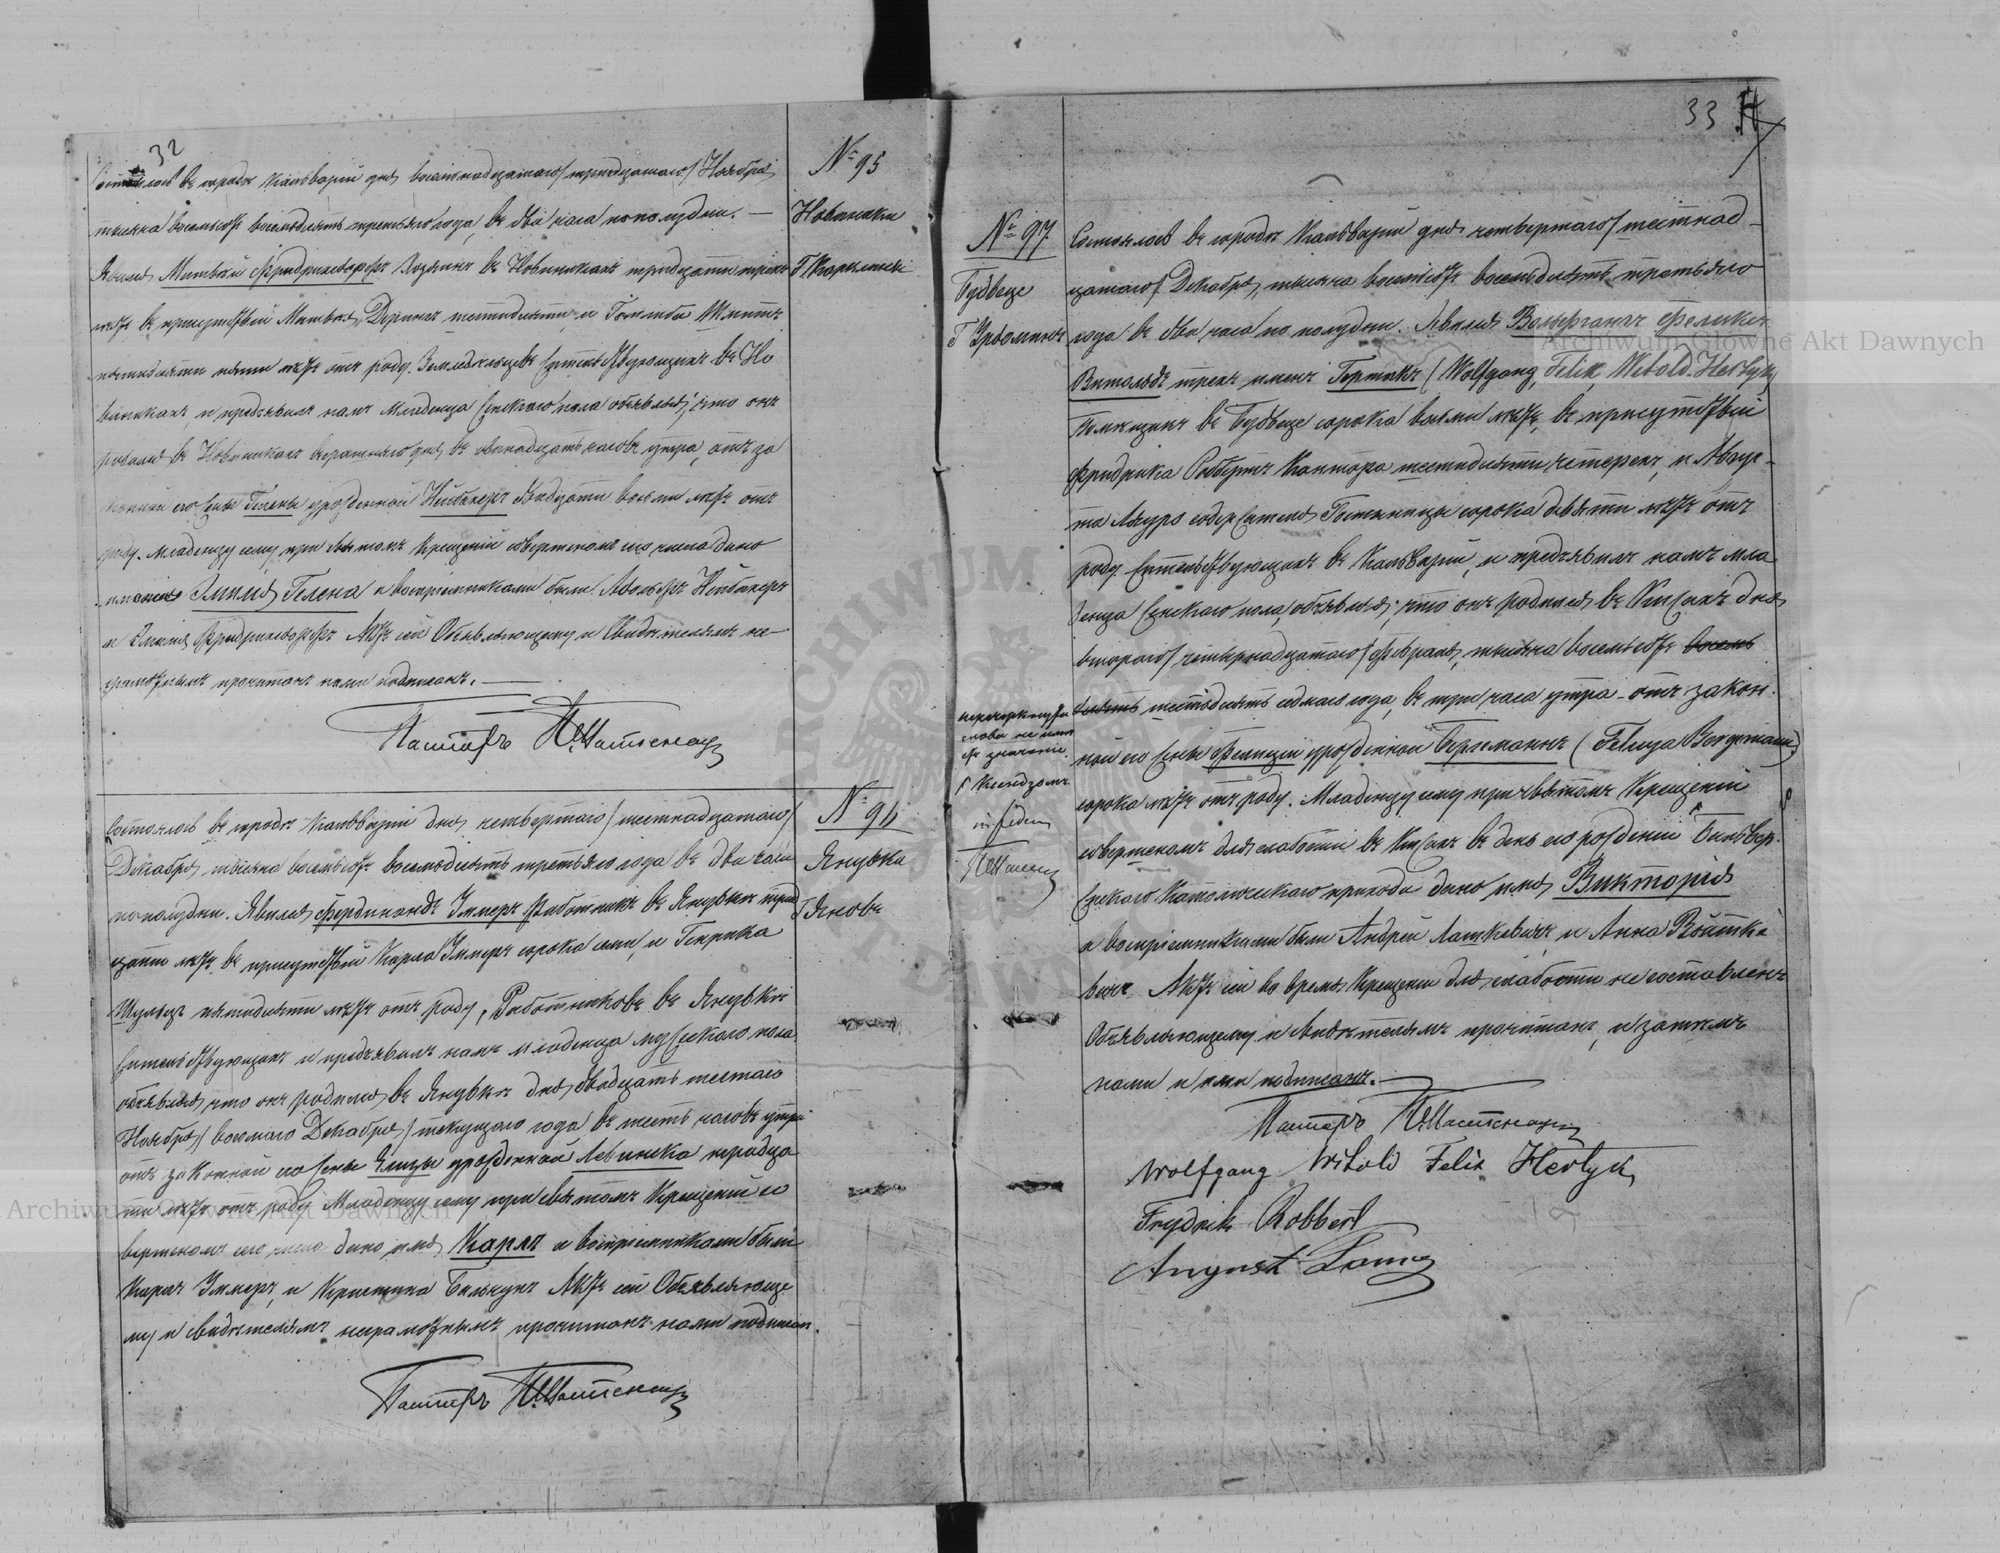 32
№ 95
Новиники
Г. Карклины
Состоялось въ городѣ Кальваріи дня восемнадцатаго /тридцатаго/ Ноября
тысяча восемьсотъ восемьдесятъ третьяго года, въ два часа по полудни. —
Явился Матвѣй Фридрихсдорфъ Хозяинъ въ Новиникахъ тридцати трехъ
лѣтъ въ присутствіи Матвея шестидесяти, и Готлиба Шмитъ
пятидесяти пяти лѣтъ отъ роду. Земледѣльцевъ жительствующихъ въ Но
виникахъ, и предъявилъ намъ Младенца женскаго пола объявляя, что онъ
родился въ Новиникахъ вчерашняго дня, въ одинадцать часовъ утра, отъ за
конной его жены Гелены урожденной Нейбахеръ двадцати восьми лѣтъ отъ
роду. Младенцу сему при святомъ крещеніи совершеномъ сего числа дано
имена Эмилія Гелена а воспріемниками были Адольфъ Нейбахеръ
и Эмилія Фридрихсдорфъ Актъ сей Объявляющему и Свидѣтелямъ не-
грамотнымъ прочитанъ нами подписанъ. —
Пасторъ
№ 96
Янувка
Г. Яновъ
Состоялось въ городѣ Кальваріи дня четвертаго /шестнадцатаго/
Декабря, тысяча восемьсотъ восемьдесятъ третьяго года въ два часа
по полудни. Явился Фердинандъ Иммеръ Работникъ въ Янувкѣ трид
цати лѣтъ, въ присутствіи Карла Иммеръ сорока семи, и Генрика
Шульцъ пятидесяти лѣтъ отъ роду, Работниковъ въ Янувкѣ
жительствующихъ и предъявилъ намъ младенца мужескаго пола
объявляя, что онъ родился въ Янувкѣ дня двадцать шестаго
Ноября /восьмаго Декабря/ текущаго года въ шесть часовъ утра
отъ законной его жены Элизы урожденной Левинска тридца
ти лѣтъ отъ роду Младенцу сему при святомъ Крещеніи со
вершеномъ сего числа дано имя Карлъ а воспріемниками были
Карлъ Иммеръ, и Кристина Актъ сей Объявляюще
му и свидѣтелямъ неграмотнымъ прочитанъ нами подписан.
Пасторъ
33
№ 97
Будвеце
Г. Урдоминъ
Состоялось въ городѣ Кальваріи дня четвертаго /шестнад-
цатаго/ Декабря, тысяча восемьсотъ восемьдесятъ третьяго
года въ два часа по полудни. Явился Вольфгангъ Феликсъ
Витольдъ трехъ именъ Гертыкъ (Wolfgang, Felix, Witold Hertyk)
Помѣщикъ въ Будвеце сорока восьми лѣтъ, въ присутствіи
Фридрика Роббертъ Кантора шестидесяти четерехъ, и Авгус-
та Лауро содержателя Гостиницы сорока девяти лѣтъ отъ
роду жительствующихъ въ Кальваріи, и предъявилъ намъ мла
денца женскаго пола, объявляя, что онъ родился въ дня
втораго /четырнадцатаго/ Февраля, тысяча восемьсотъ восемь
десятъ шестьдесятъ седьмаго года, въ три часа утра — отъ закон-
ной его жены Фелиціи урожденной Бергеманнъ (Felicya Bergemann)
сорока лѣтъ отъ роду. Младенцу сему при святомъ Крещеніи
совершеномъ для слабости въ въ день его рожденія
Католическаго прихода дано имя Викторія
а воспріемниками были Андрей Лашкевичъ, и Анна Войтке
вичъ. Актъ сей во время Крещенія для слабости не составленъ
Объявляющему и свидѣтелямъ прочитанъ, и затѣмъ
нами и ими подписанъ. —
перечеркнутыя
слова не имѣ
ютъ значенія
in fidem
Пасторъ
Wolfgang Witold Felix Hertyk
Frydrik Robbert
August